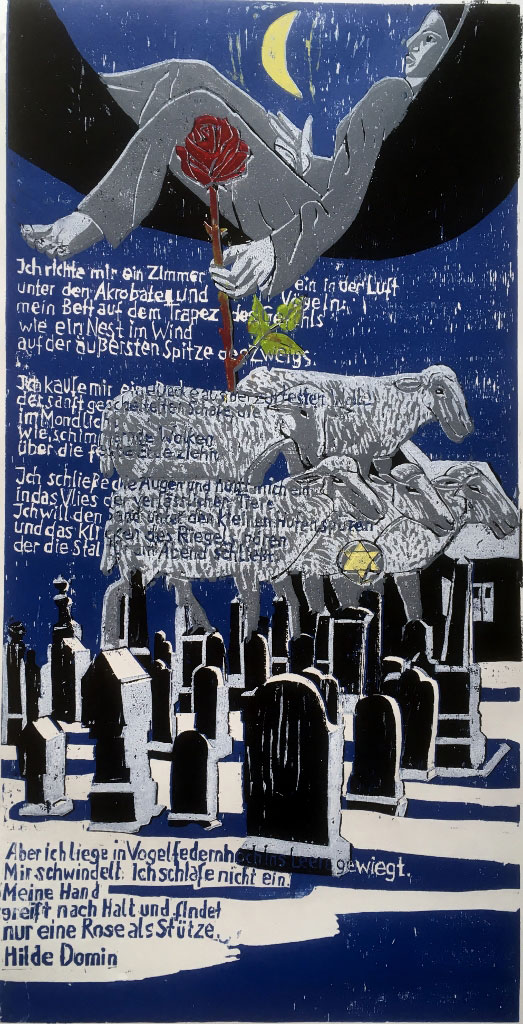 Ich richte mir ein Zimmer ein in der Luft
unter den Akrobaten und Vögeln:
mein Bett auf dem Trapez des Gefühls
wie ein Nest im Wind
auf der äußersten Spitze des Zweigs.
Ich kaufe mir eine Decke aus der zartesten Wolle
der sanftgescheitelten Schafe die
im Mondlicht
wie schimmernde Wolken
über die feste Erde ziehn.
Ich schließe die Augen und hülle mich ein
in das Vlies der verläßlichen Tiere
Ich will den Sand unter den kleinen Hufen spüren
und das Klicken des Riegels hören
der die Stalltür am Abend schließt.
Aber ich liege in Vogelfedern hoch ins Leere gewiegt.
Mir schwindelt. Ich schlafe nicht ein.
Meine Hand
greift nach Halt und findet
nur eine Rose als Stütze.
Hilde Domin